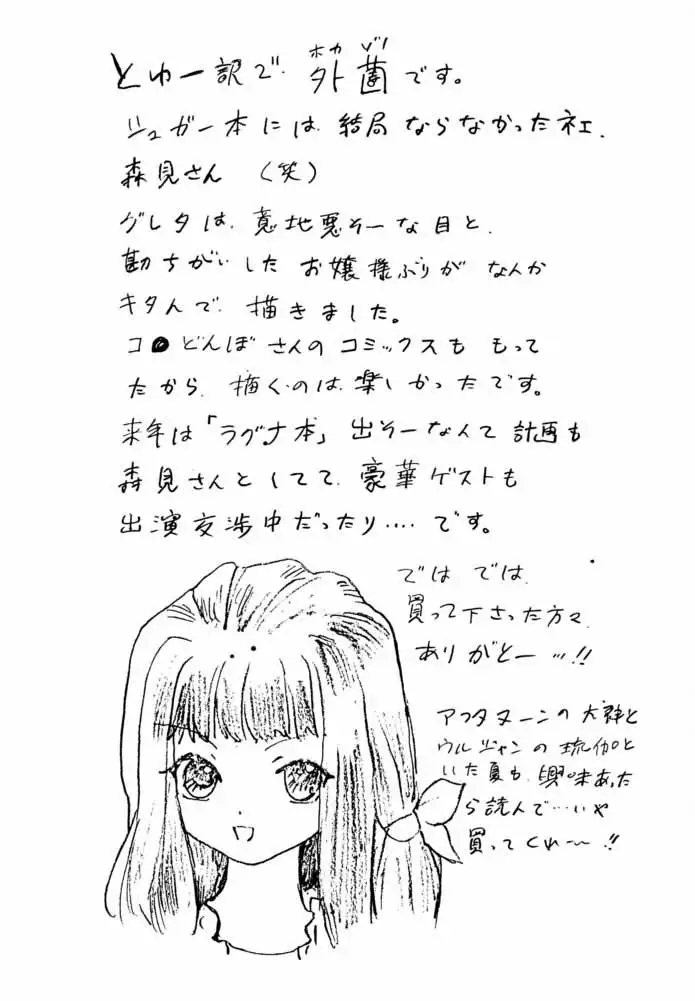 ホカ ゾノ
とゆー訳で、外薗です。
シュガー本には、結局ならなかったネェ、
森見さん(笑)
グレタは、意地悪そーな目と、
勘ちがいしたお嬢様ぶりがなんか
キタんで、描きました。
コ●どんぼさんのコミックスももって
たから、描くのは、楽しかったです。
来年は「ラグナ本」出そーなんて計画も
森見さんとしてて、豪華ゲストも
出演交渉中だったり‥‥です。
では では、
買って下さった方々、
ありがとー…!!
アフタヌーンの大神と
ウルジャンの琉伽と
いた夏も、興味あった
ら読んで…いや
買ってくれ〜!!